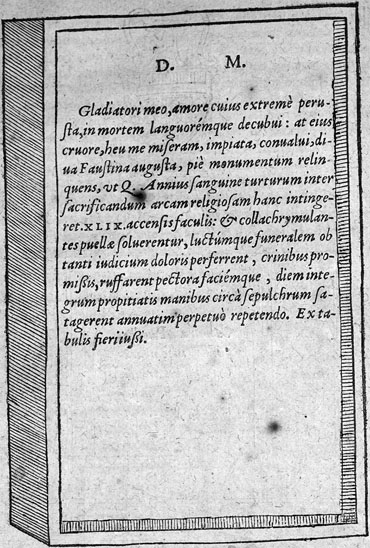 D. M.
Gladiatori meo, amore cuius extremè peru-
sta, in mortem languorémque decubui: at eius
cruore, heu me miseram, impiata, conualui, di-
ua Faustina augusta, piè monumentum relin-
quens, vt Q. Annius sanguine turturum inter
sacrificandum arcam religiosam hanc intinge-
ret. XLIX. accensis faculis: & collachrymulan-
tes puellæ soluerentur, luctúmque funeralem ob
tanti iudicium doloris perferrent, crinibus pro-
missis, ruffarent pectora faciémque, diem inte-
grum propitiatis manibus circà sepulchrum sa-
tagerent annuatim perpetuò repetendo. Ex ta-
bulis fieri iussi.